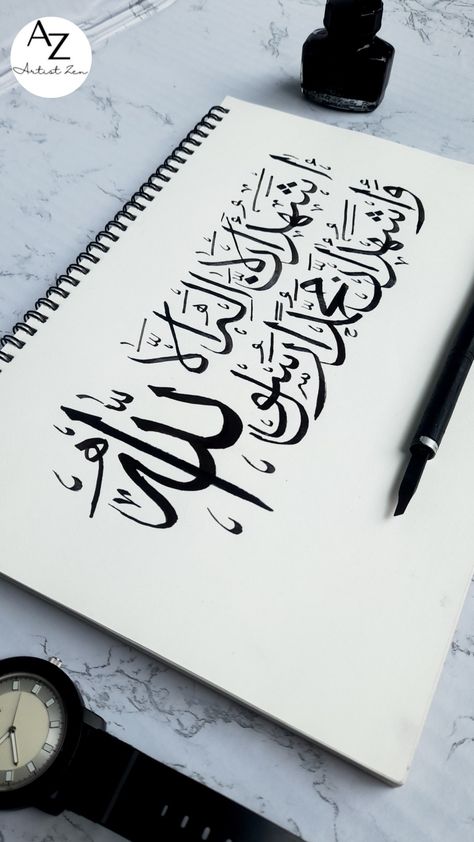 AZ
Artist Zen
أشهد أن لا إله إلا
وأشهد أن محمدا رسول
الله